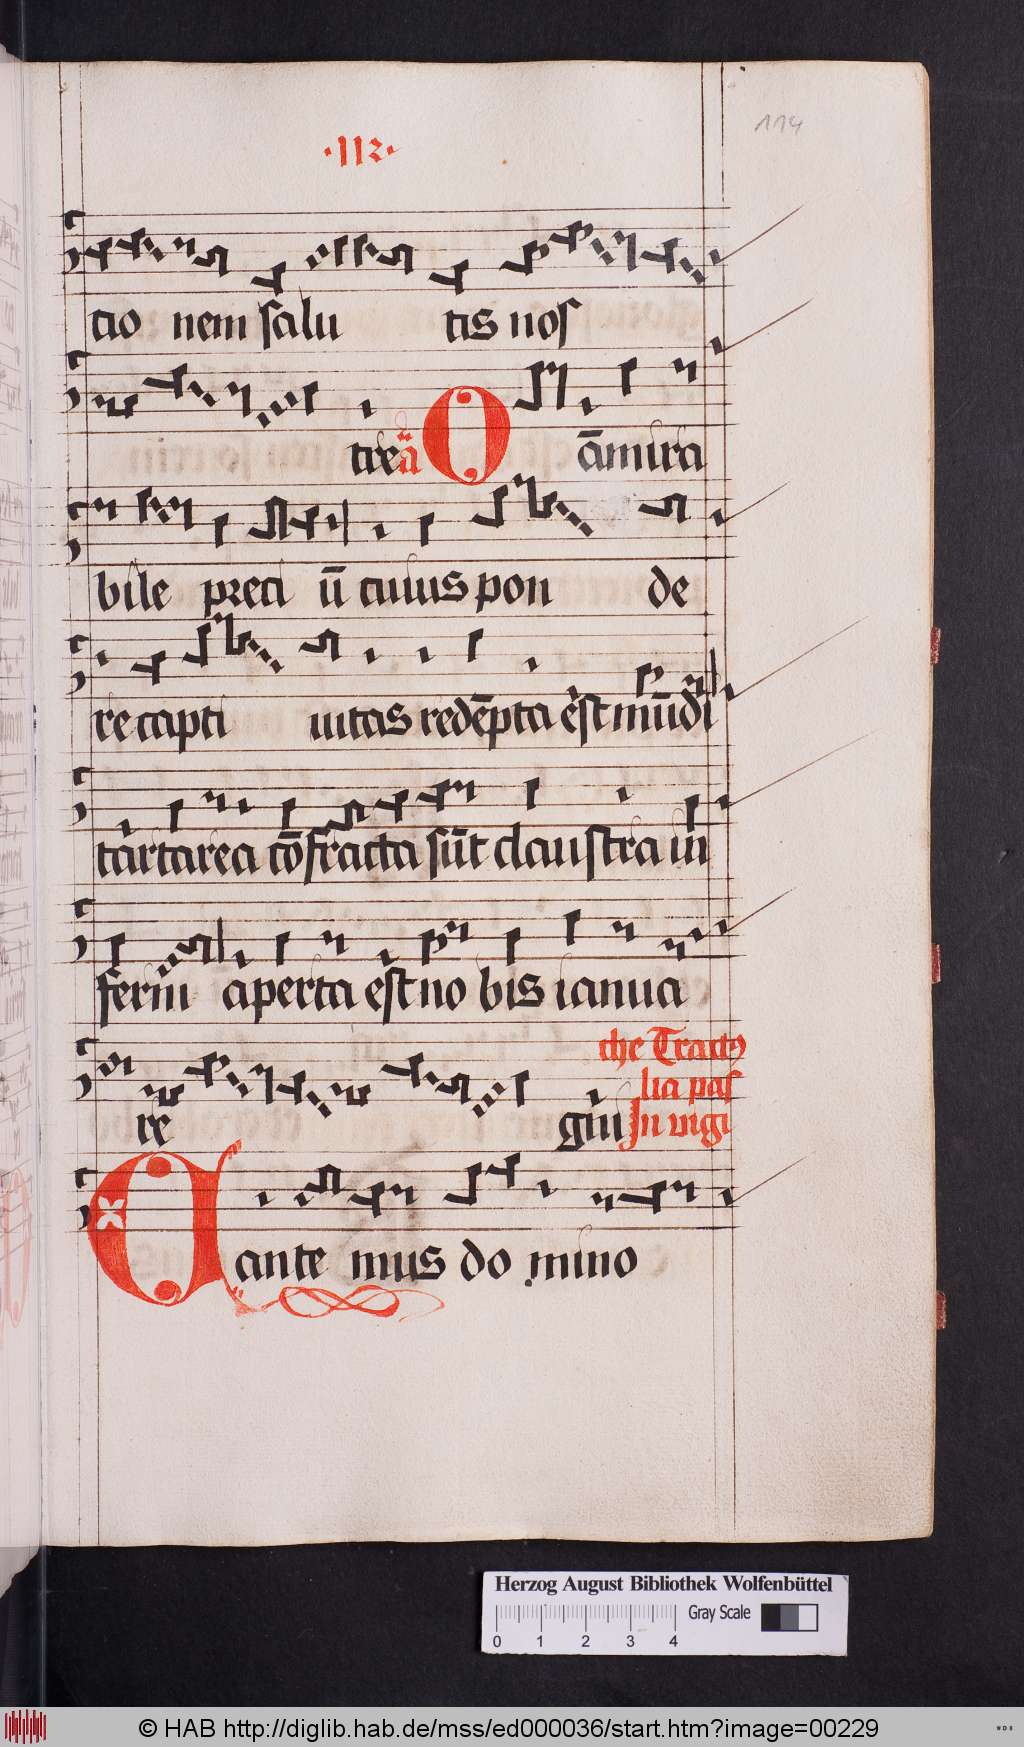 ·112·
114
tio nem salu tis nos
tre añ O āmira
bile preti ū cuius pon de
re capti uitas redēpta est mūdi
tartarea cōfracta sūt claustra in
ferni aperta est no bis ianua
re gni In vigi
lia pas
che Tractꝰ
Cante mus do mino
Herzog August Bibliothek Wolfenbüttel
Gray Scale
0 1 2 3 4
© HAB http://diglib.hab.de/mss/ed000036/start.htm?image=00229